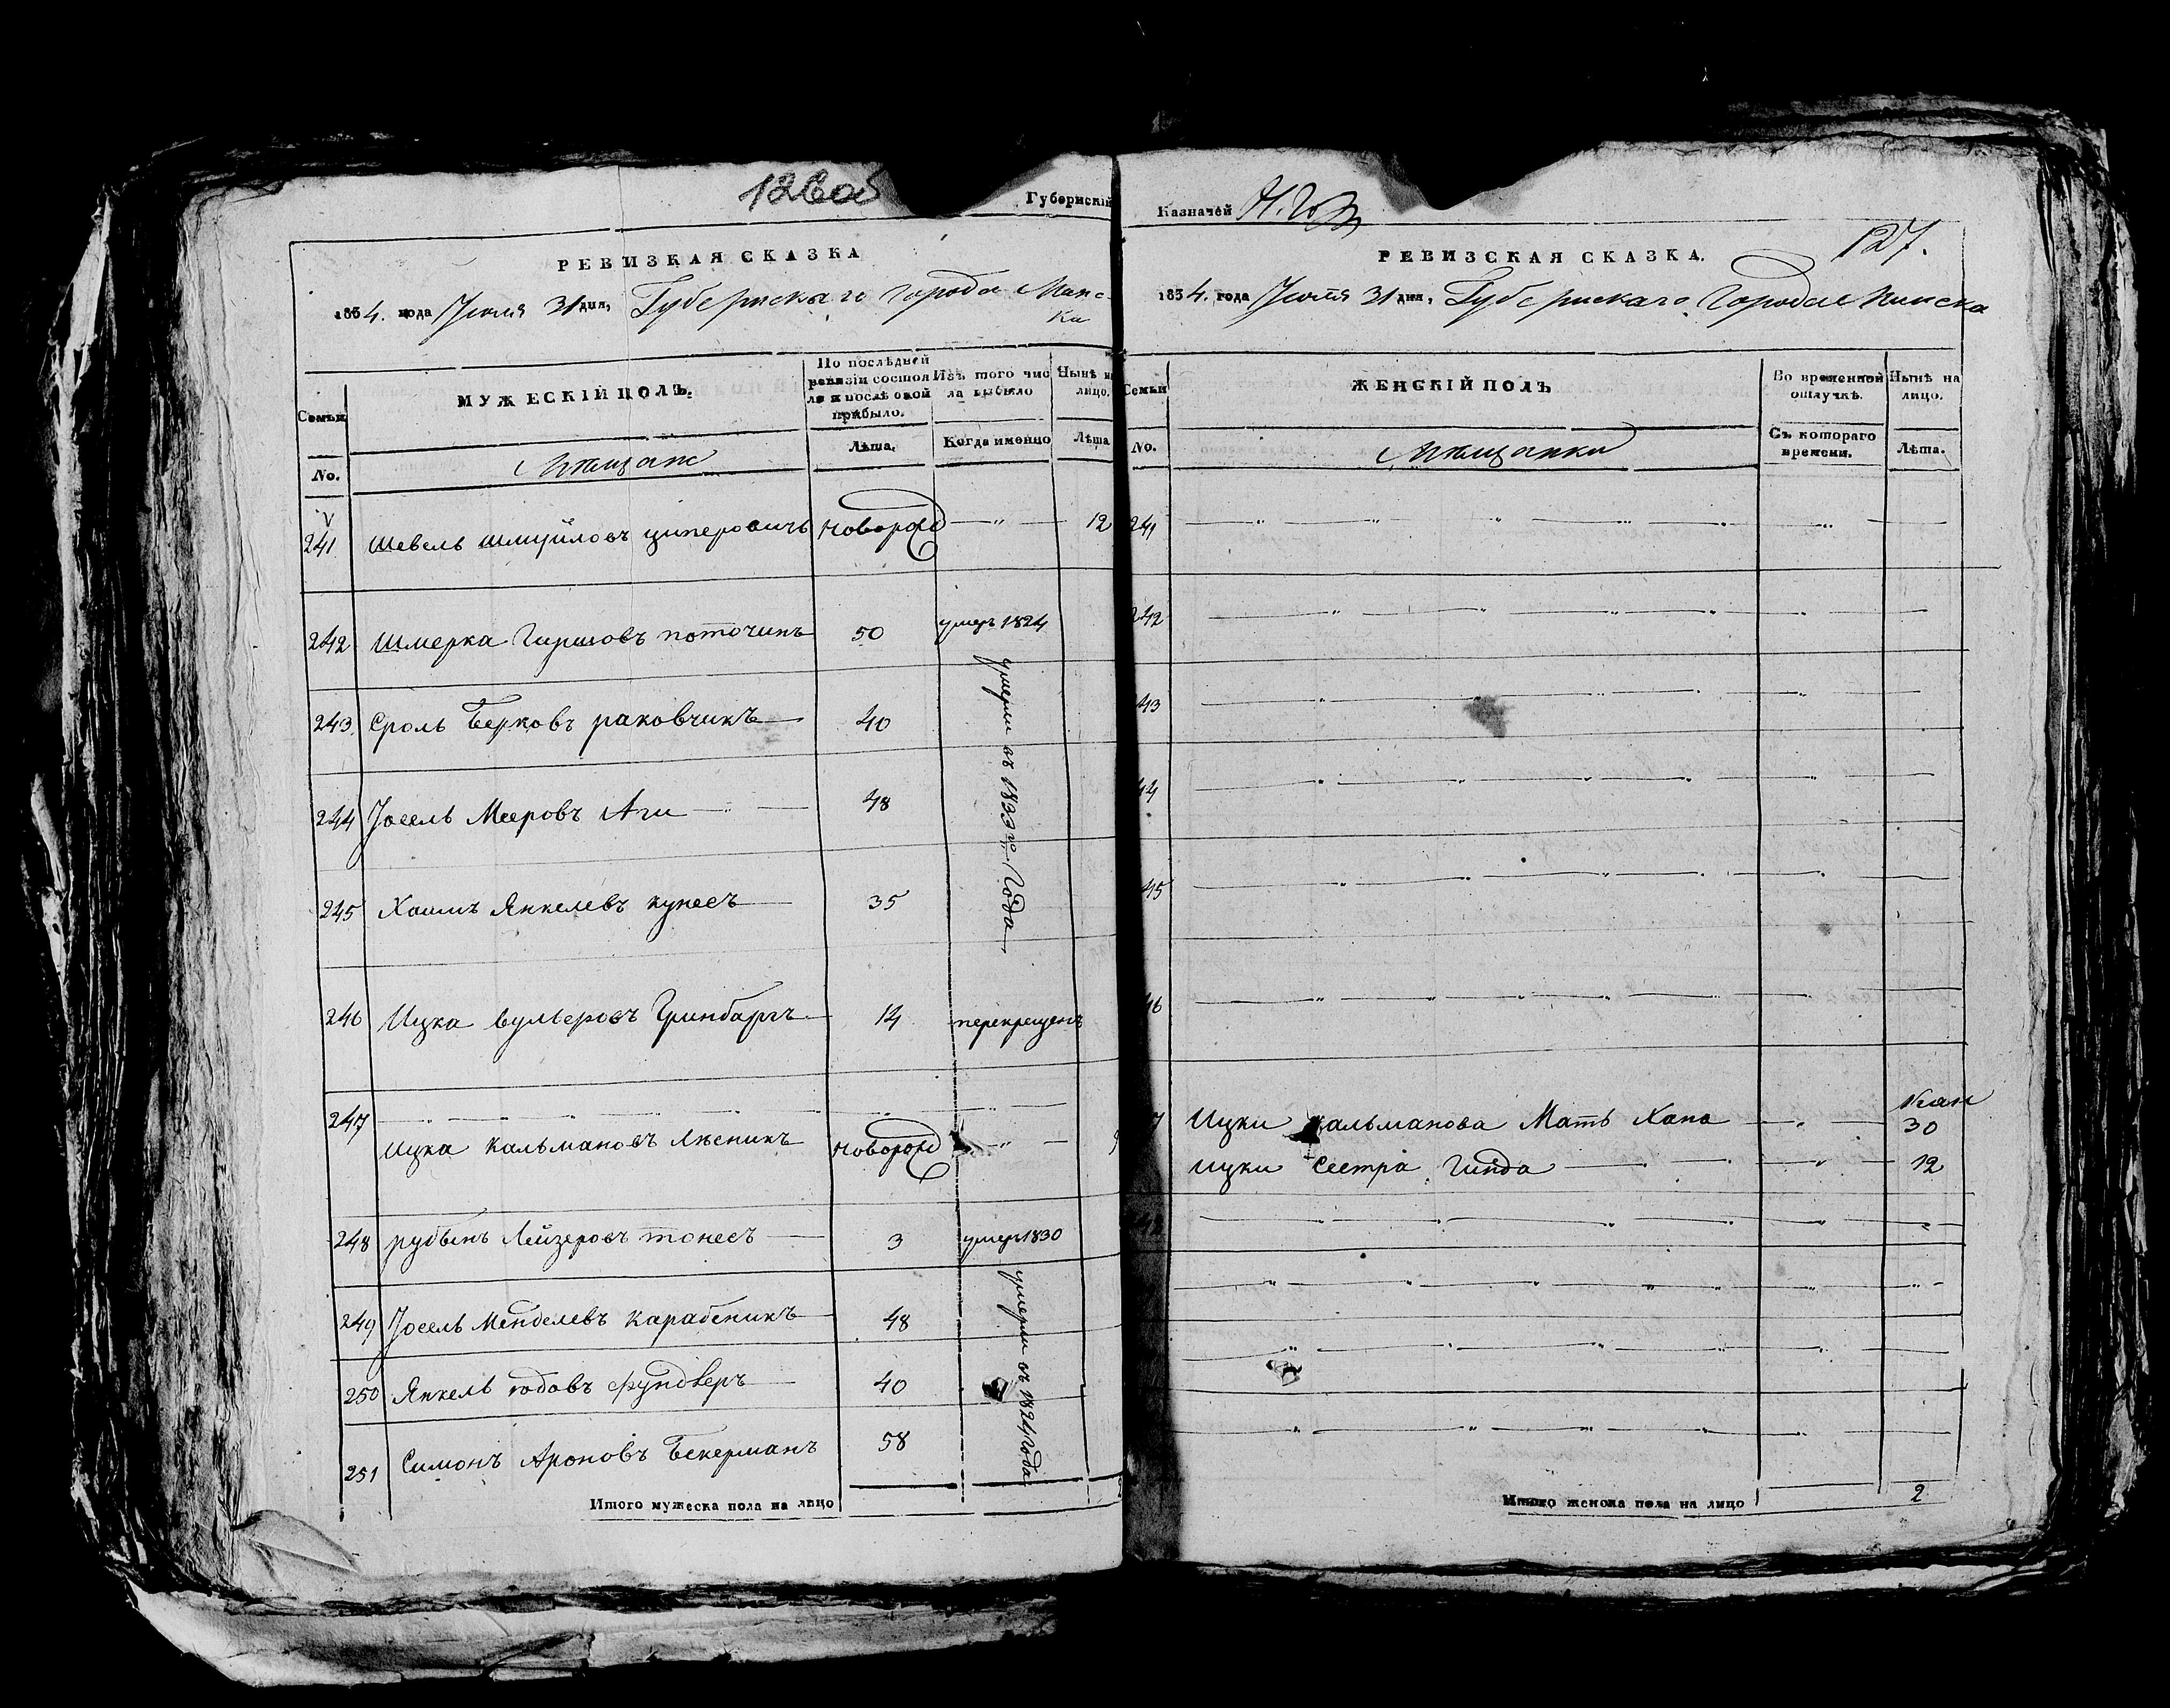 126об
Губернскій
РЕВИЗКАЯ СКАЗКА
1834. года Іюля 31 дня, Губернскаго города Минс-
ка
Семьи
МУЖЕСКІЙ ПОЛЪ.
По послѣдней
ревизіи состоя
ло и послѣ оной
прибыло.
Изъ того чис
ла выбыло
Нынѣ н
лицо.
No.
мѣщане
Лѣта.
Когда именно
Лѣта
241 Шевель Шмуйловъ циперовичъ новорожд — 12
242 Шмерка Гиршовъ поточинъ 50 умеръ 1824
243 Сроль Берковъ раковчикъ 40
умерли въ 1833го Года
244 Іосель Мееровъ Аги 48
245 Хаимъ Янкелевъ купесъ 35
246 Ицка вульфовъ Гринбаргъ 14 перекрещенъ
247
Ицка Кальмановъ Ляеникъ новорожд
248 рубынъ Лейзеровъ тонесъ 3 умеръ 1830
249 Іосель Менделевъ Карабеникъ 48
умерли въ 1824 года
250 Янкель юдовъ фундлеръ 40
251 Симонъ Ароновъ Бекерманъ 58
Итого мужеска пола на лицо
Казначей
127.
РЕВИЗСКАЯ СКАЗКА.
1834. года Іюля 31 дня, Губернскаго Города Минска
Семьи
ЖЕНСКІЙ ПОЛЪ
Во временной
отлучкѣ.
Нынѣ на
лицо.
No.
мѣщанки
Съ котораго
времени.
Лѣта.
241
242
43
44
45
46
7 Ицки кальманова Мать Хана 30
Ицки Сестра Гинда 12
Итого женска пола на лицо 2